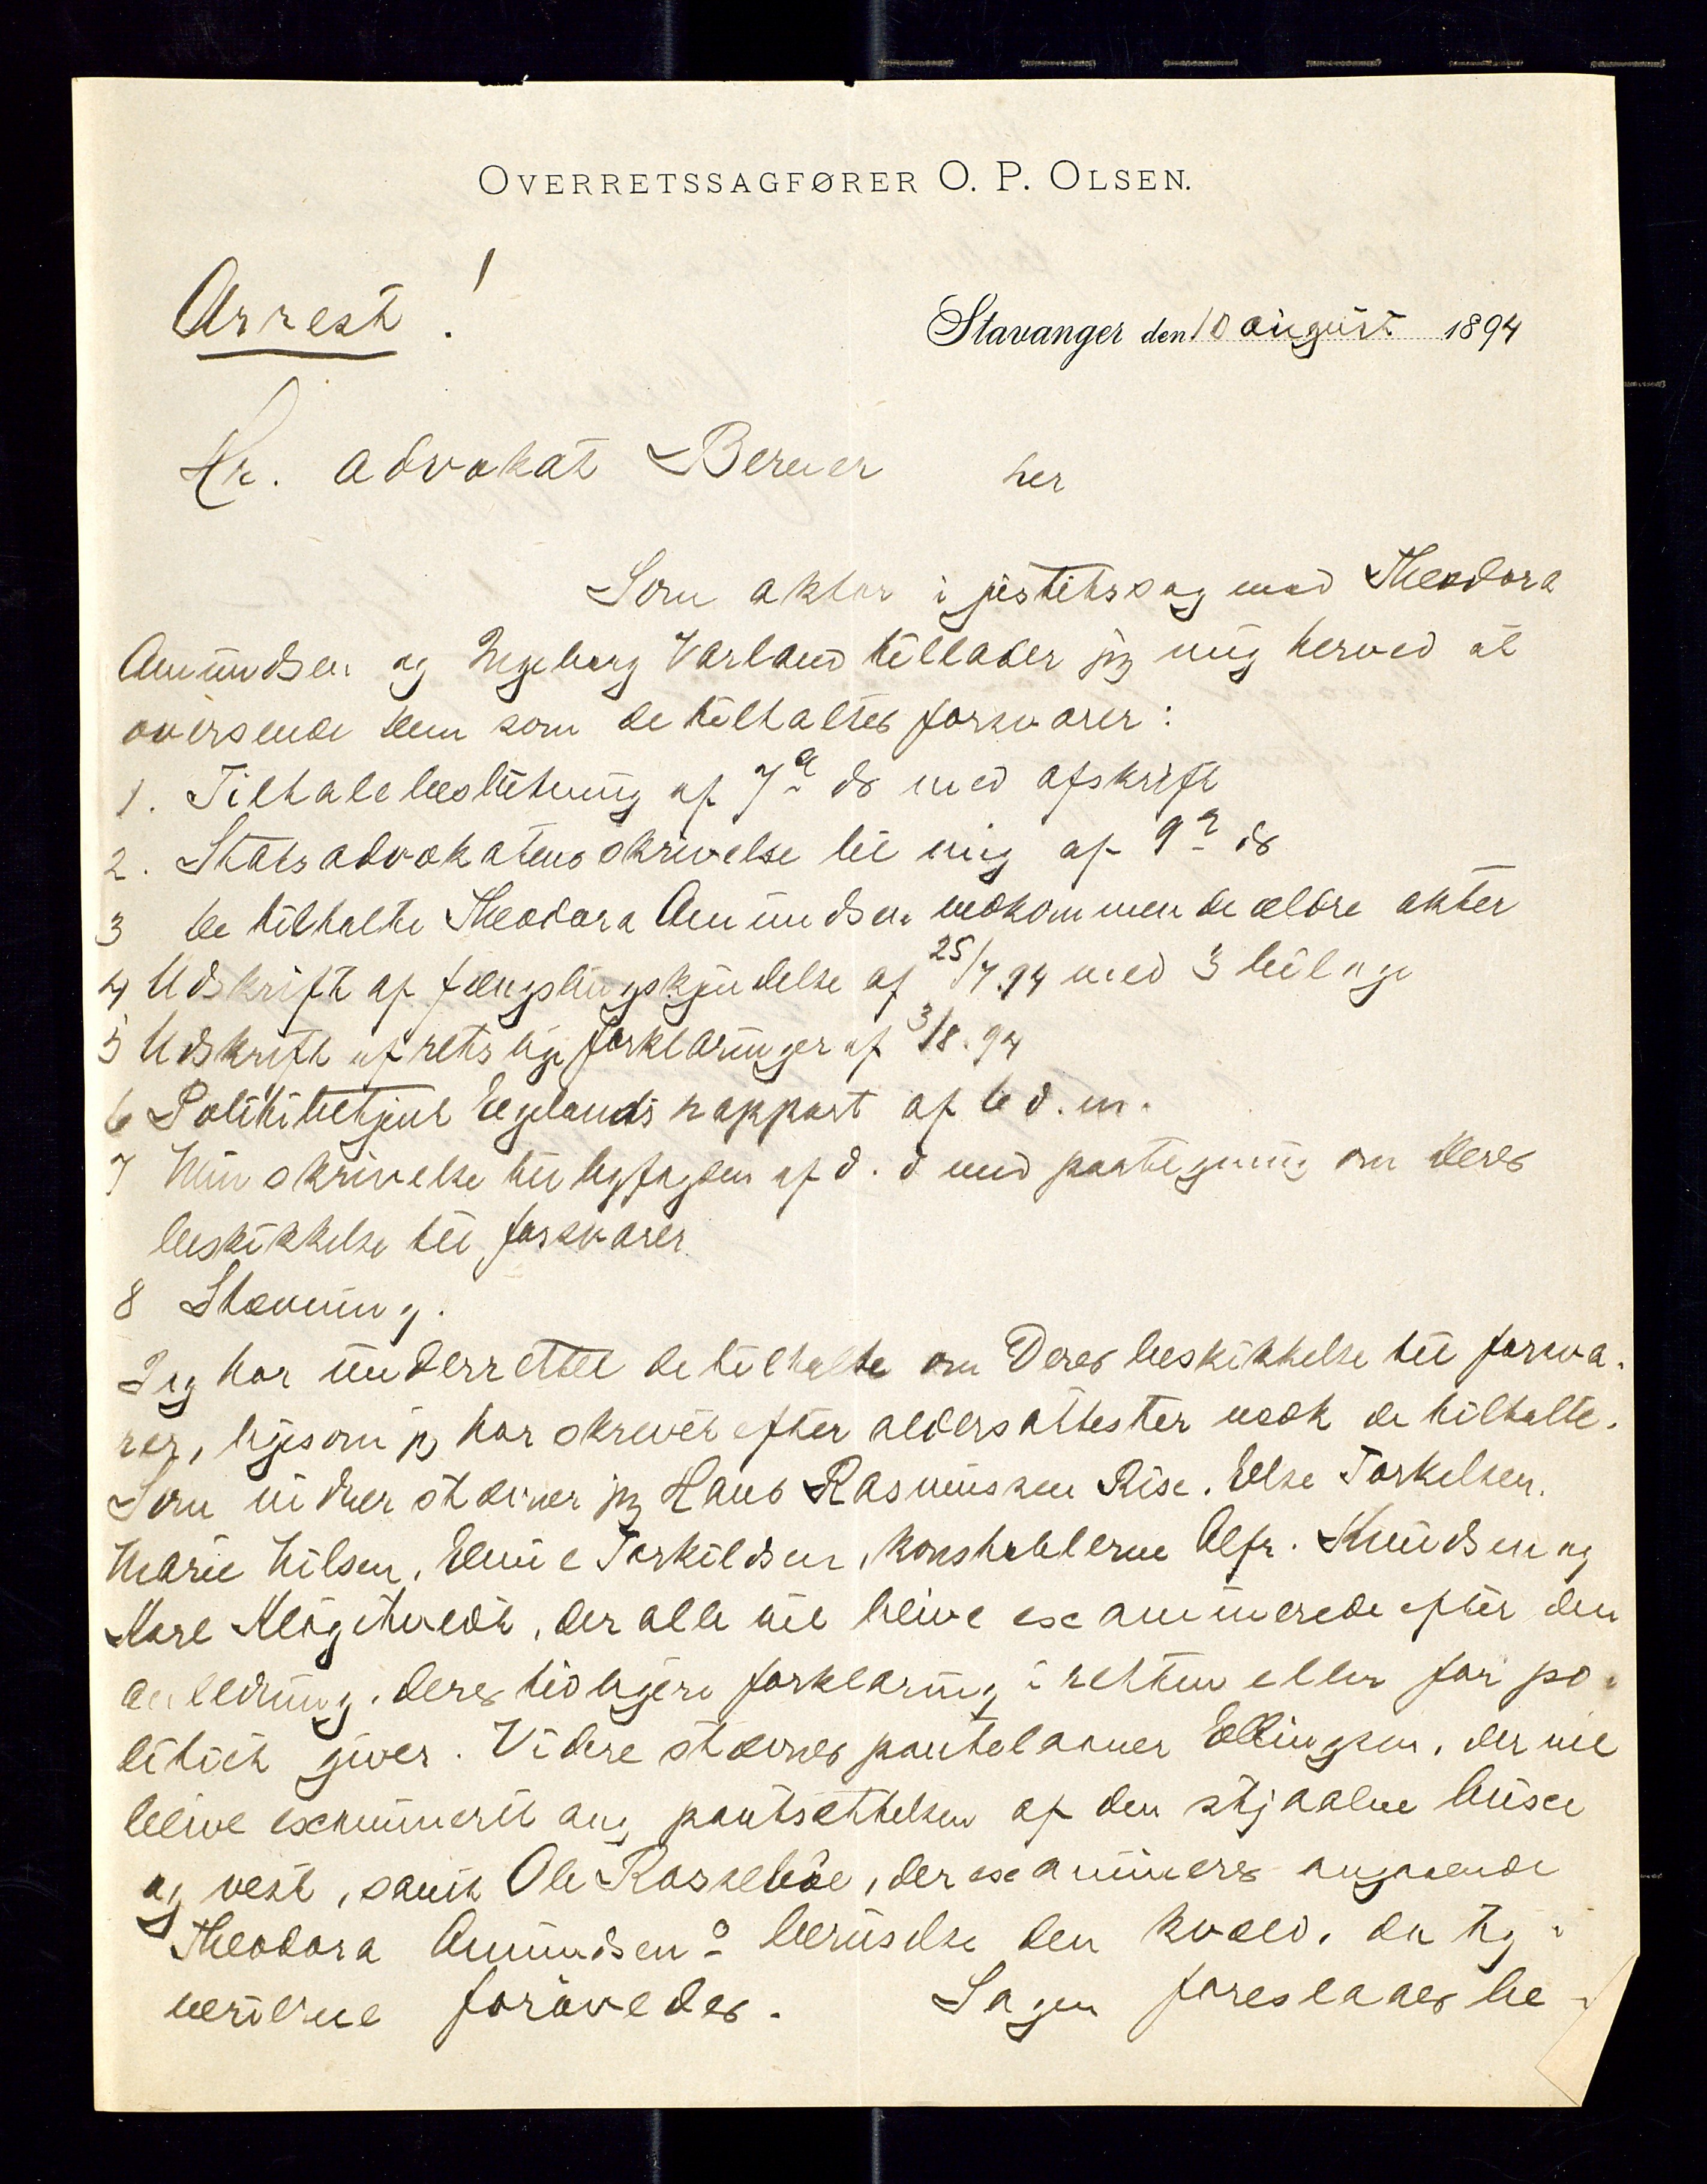 OVERRETSSAGFØRER O. P. OLSEN.
Arrest!
Stavanger den 10 august 1894
Hr. advokat Berner her
Som aktor i justitssag mod Theodora
Amundsen og Ingeborg Varland tillader jeg mig herved at
oversende Dem som de tiltaltes forsvarer:
1. Tiltalebeslutning af 7de ds med afskrift
2. Statsadvokatens skrivelse til mig af 9de ds
3 de tiltalte Theodora Amundsen vedkommende ældre akter
4 Udskrift af fængslingskjendelse af 25/7.94 med 3 bilage
5 Udskrift af retslige forklaringer af 3/8.94
6 Politibetjent Egelands rapport af 6 d.m.
7 Min skrivelse til byfogden af d.d med paategning om Deres
beskikkelse til forsvarer
8 Stævning.
Jeg har underrettet de tiltalte om Deres beskikkelse til forsva-
rer, ligesom jeg har skrevet efter aldersattester vedk de tiltalte.
Som vidner stævner jeg Hans Rasmussen Rise, Else Torkelsen,
Marie Nilsen, Emilie Torkildsen, konstablerne Alfr. Knudsen og
Karl Kløgetvedt, der alle vil blive examinerede efter den
anledning, deres tidligere forklaring i retten eller for po-
litiet giver. Videre stævnes pantelaaner Ellingsen, der vil
blive examineret ang pantsættelsen af den stjaalne buxe
og vest, samt Ole Rossebøe, der examineres angaaende
Theodora Amundsens beruselse den kvæld, da tyv-
verierne forøvedes. Sagen foreslaaes be-